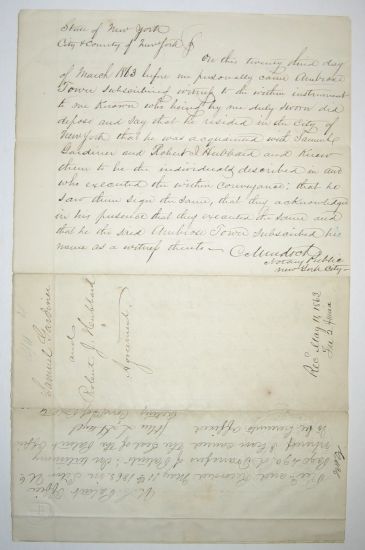 State of New York
City & County of New York
On this twenty third day
of March 1863 before me personally came Ambrose
Town subscribing witness to the within instrument
to me Known who being by me duly sworn did
depose and say that he resided in the City of
New York that he was acquainted with Samuel
Gardiner and Robert J. Hubbard and Knew
them to be the individuals described in and
who executed the within conveyance; that he
saw them sign the same, that they acknowledged
in his presence that they executed the same and
that he the said Ambrose Town subscribed his
name as a witness thereto
C Murdock
Notary Public
New York City
Samuel Gardiner
and
Robert J. Hubbard
Agreement
Rec May 11, 1863
U. S. Patent Office
Recorded May 11th 1863 in
of Transfers of Patents; In testimony
whereof I have caused the Seal of the Patent Office
to be hereunto affixed